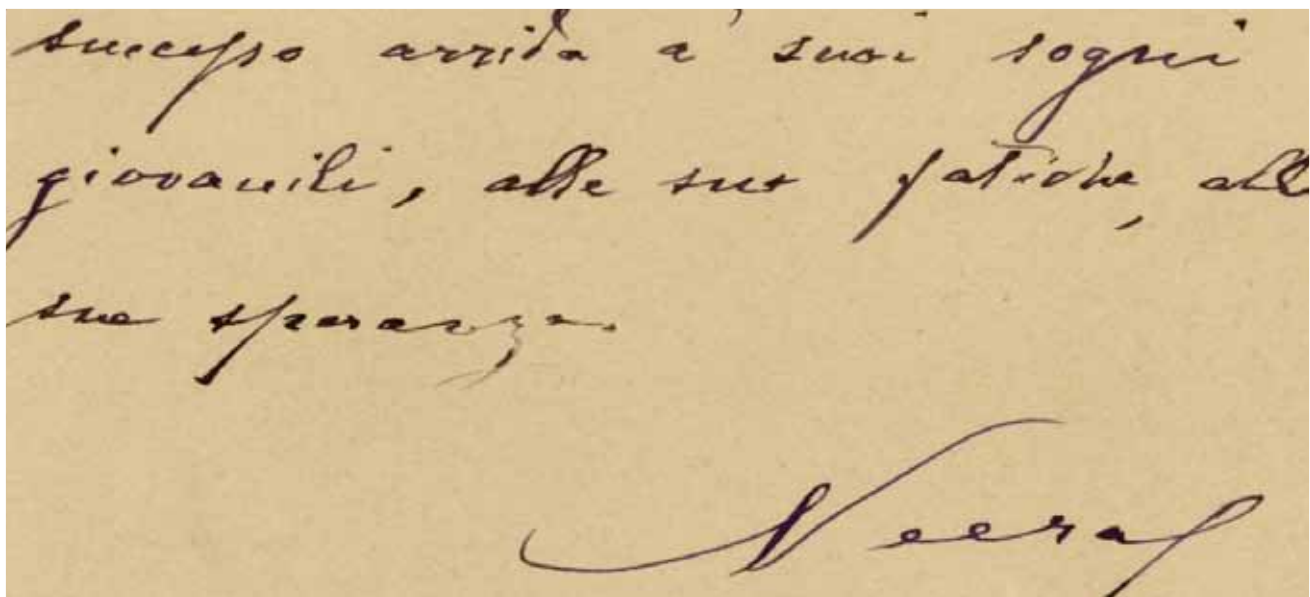 successo arrida a' suoi sogni
giovanili, alle sue fatiche, alle
sue speranze.
Neera